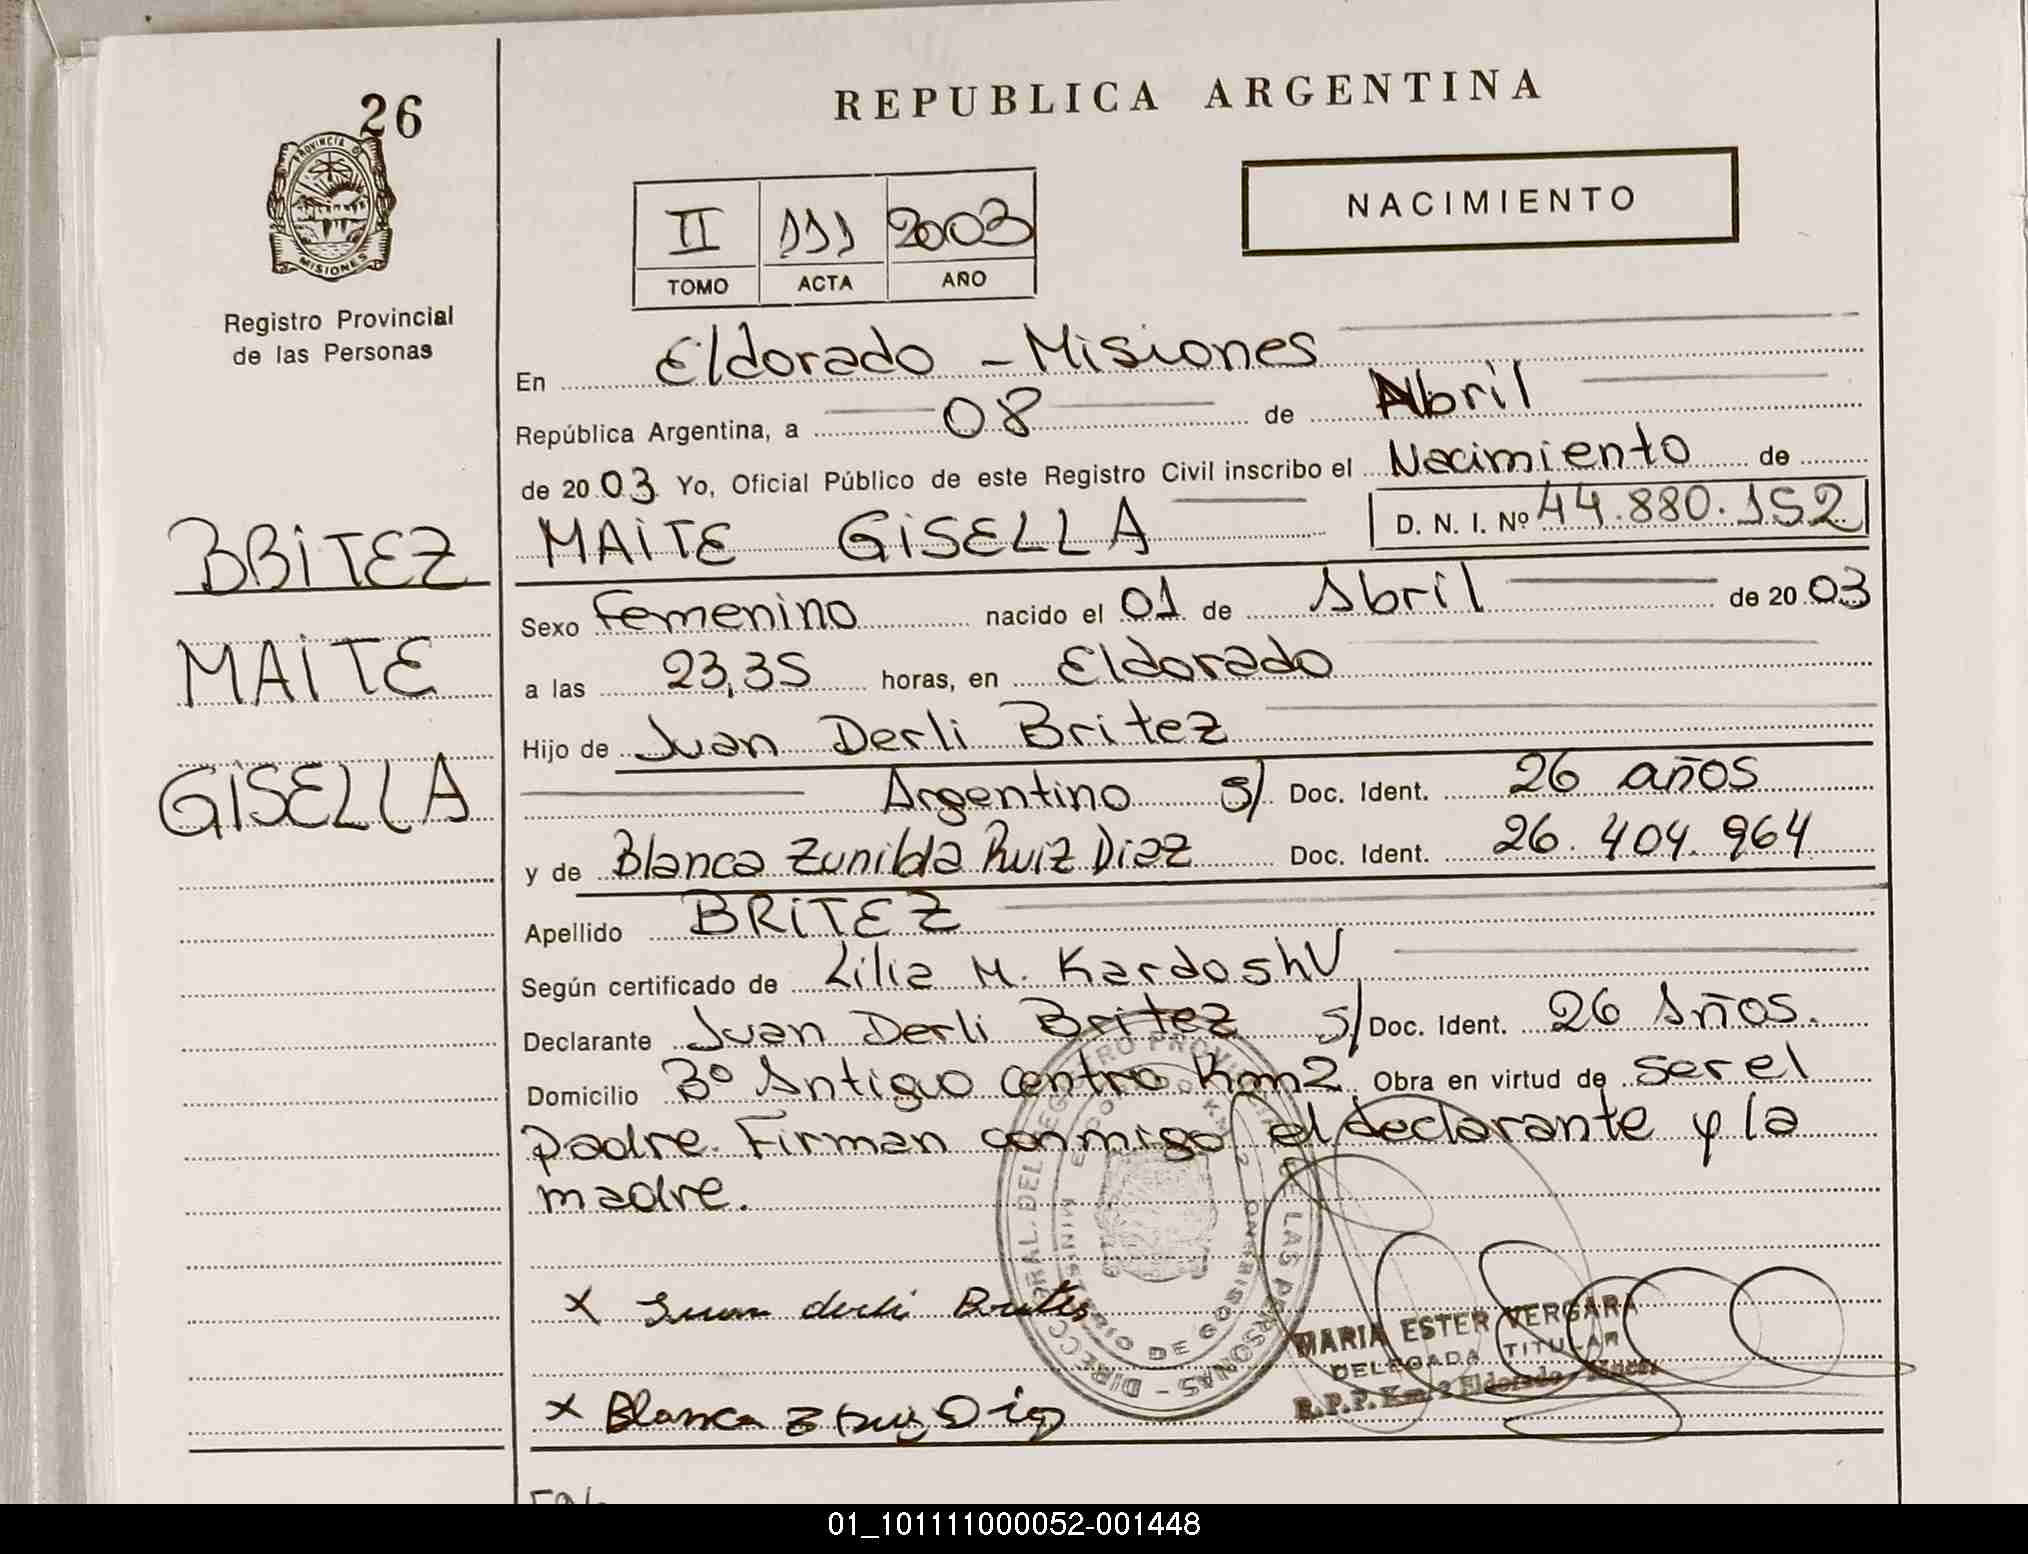 26
PROVINCIA D
MISIONES
Registro Provincial
de las Personas
REPUBLICA ARGENTINA
NACIMIENTO
II 111 2003
TOMO ACTA AÑO
En Eldorado - Misiones
República Argentina, a 08 de Abril
de 2003 Yo, Oficial Público de este Registro Civil inscribo el Nacimiento de
MAITE GISELLA D. N. I. Nº 44.880.152
BBITEZ
MAITE
GISELLA
Sexo Femenino nacido el 01 de Abril de 2003
a las 23,35 horas, en Eldorado
Hijo de Juan Derli Britez
Argentino s/ Doc. Ident. 26 años
y de Blanca Zunilda Ruiz Diaz Doc. Ident. 26.404.964
Apellido BRITEZ
Según certificado de Lilia M. KardoshV
Declarante Juan Derli Britez s/ Doc. Ident. 26 Años.
Domicilio Bº Antiguo centro Km2 Obra en virtud de ser el
padre. Firman conmigo el declarante y la
madre.
x Juan derli Brites
x Blanca Z Ruiz Diaz
MARIA ESTER VERGARA
DELEGADA TITULAR
R.P.P. Km. 2 Eldorado
01_101111000052-001448